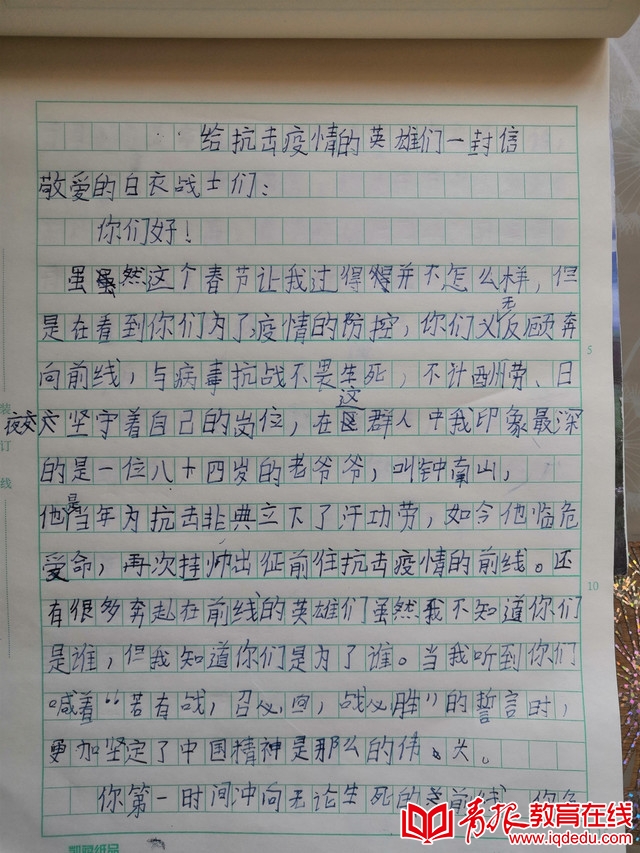 给抗击疫情的英雄们一封信
敬爱的白衣战士们：
你们好！
虽然这个春节让我过得并不怎么样，但
是在看到你们为了疫情的防控，你们义无反顾奔
向前线，与病毒抗战不畏生死，不计酬劳、日
夜坚守着自己的岗位，在这群人中我印象最深
的是一位八十四岁的老爷爷，叫钟南山，
他是当年为抗击非典立下了汗功劳，如今他临危
受命，再次挂帅出征前往抗击疫情的前线。还
有很多奔赴在前线的英雄们虽然我不知道你们
是谁，但我知道你们是为了谁。当我听到你们
喊着“若有战，召必回，战必胜”的誓言时，
更加坚定了中国精神是那么的伟、大。
你第一时间冲向无论生死的前线
装
订
线
5
10
青报教育在线
www.iqdedu.com